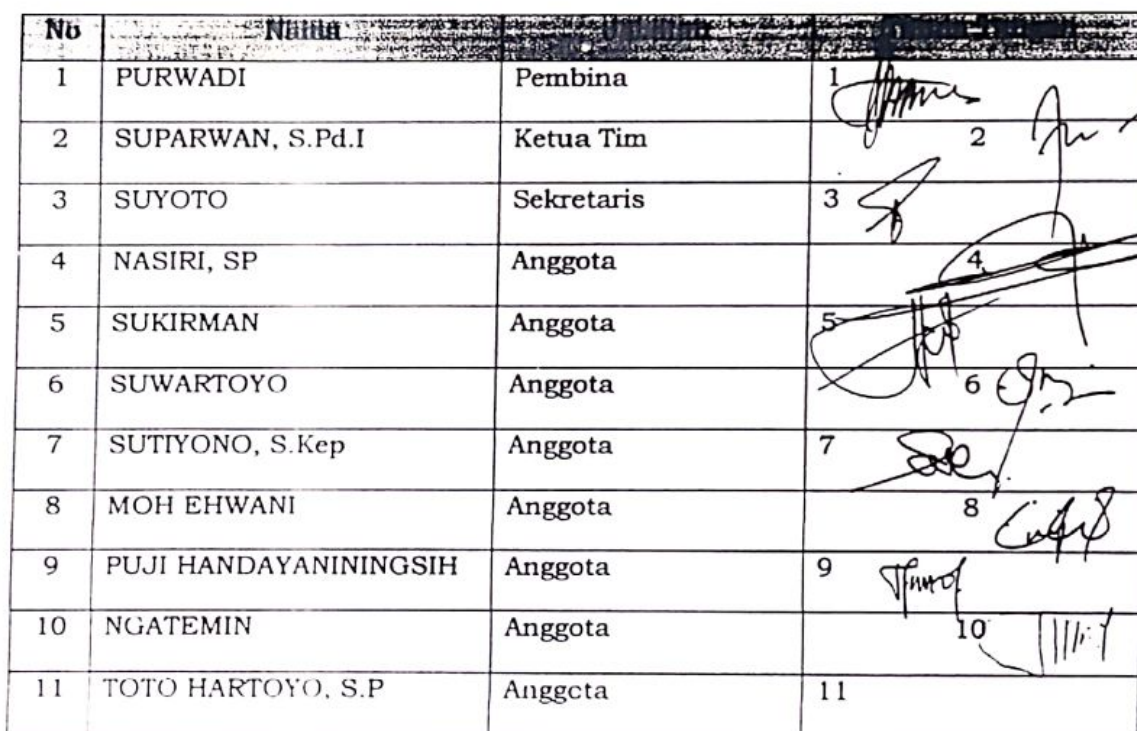 No Nama
1 PURWADI Pembina 1
2 SUPARWAN, S.Pd.I Ketua Tim 2
3 SUYOTO Sekretaris 3
4 NASIRI, SP Anggota 4
5 SUKIRMAN Anggota 5
6 SUWARTOYO Anggota 6
7 SUTIYONO, S.Kep Anggota 7
8 MOH EHWANI Anggota 8
9 PUJI HANDAYANININGSIH Anggota 9
10 NGATEMIN Anggota 10
11 TOTO HARTOYO, S.P Anggota 11